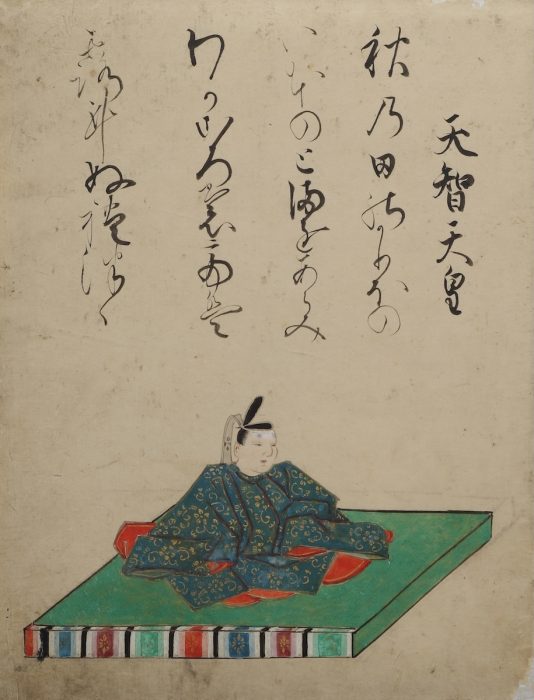 天智天皇
秋乃田のかりほの
いほのと満をあらみ
わかころもては
露にぬれつゝ